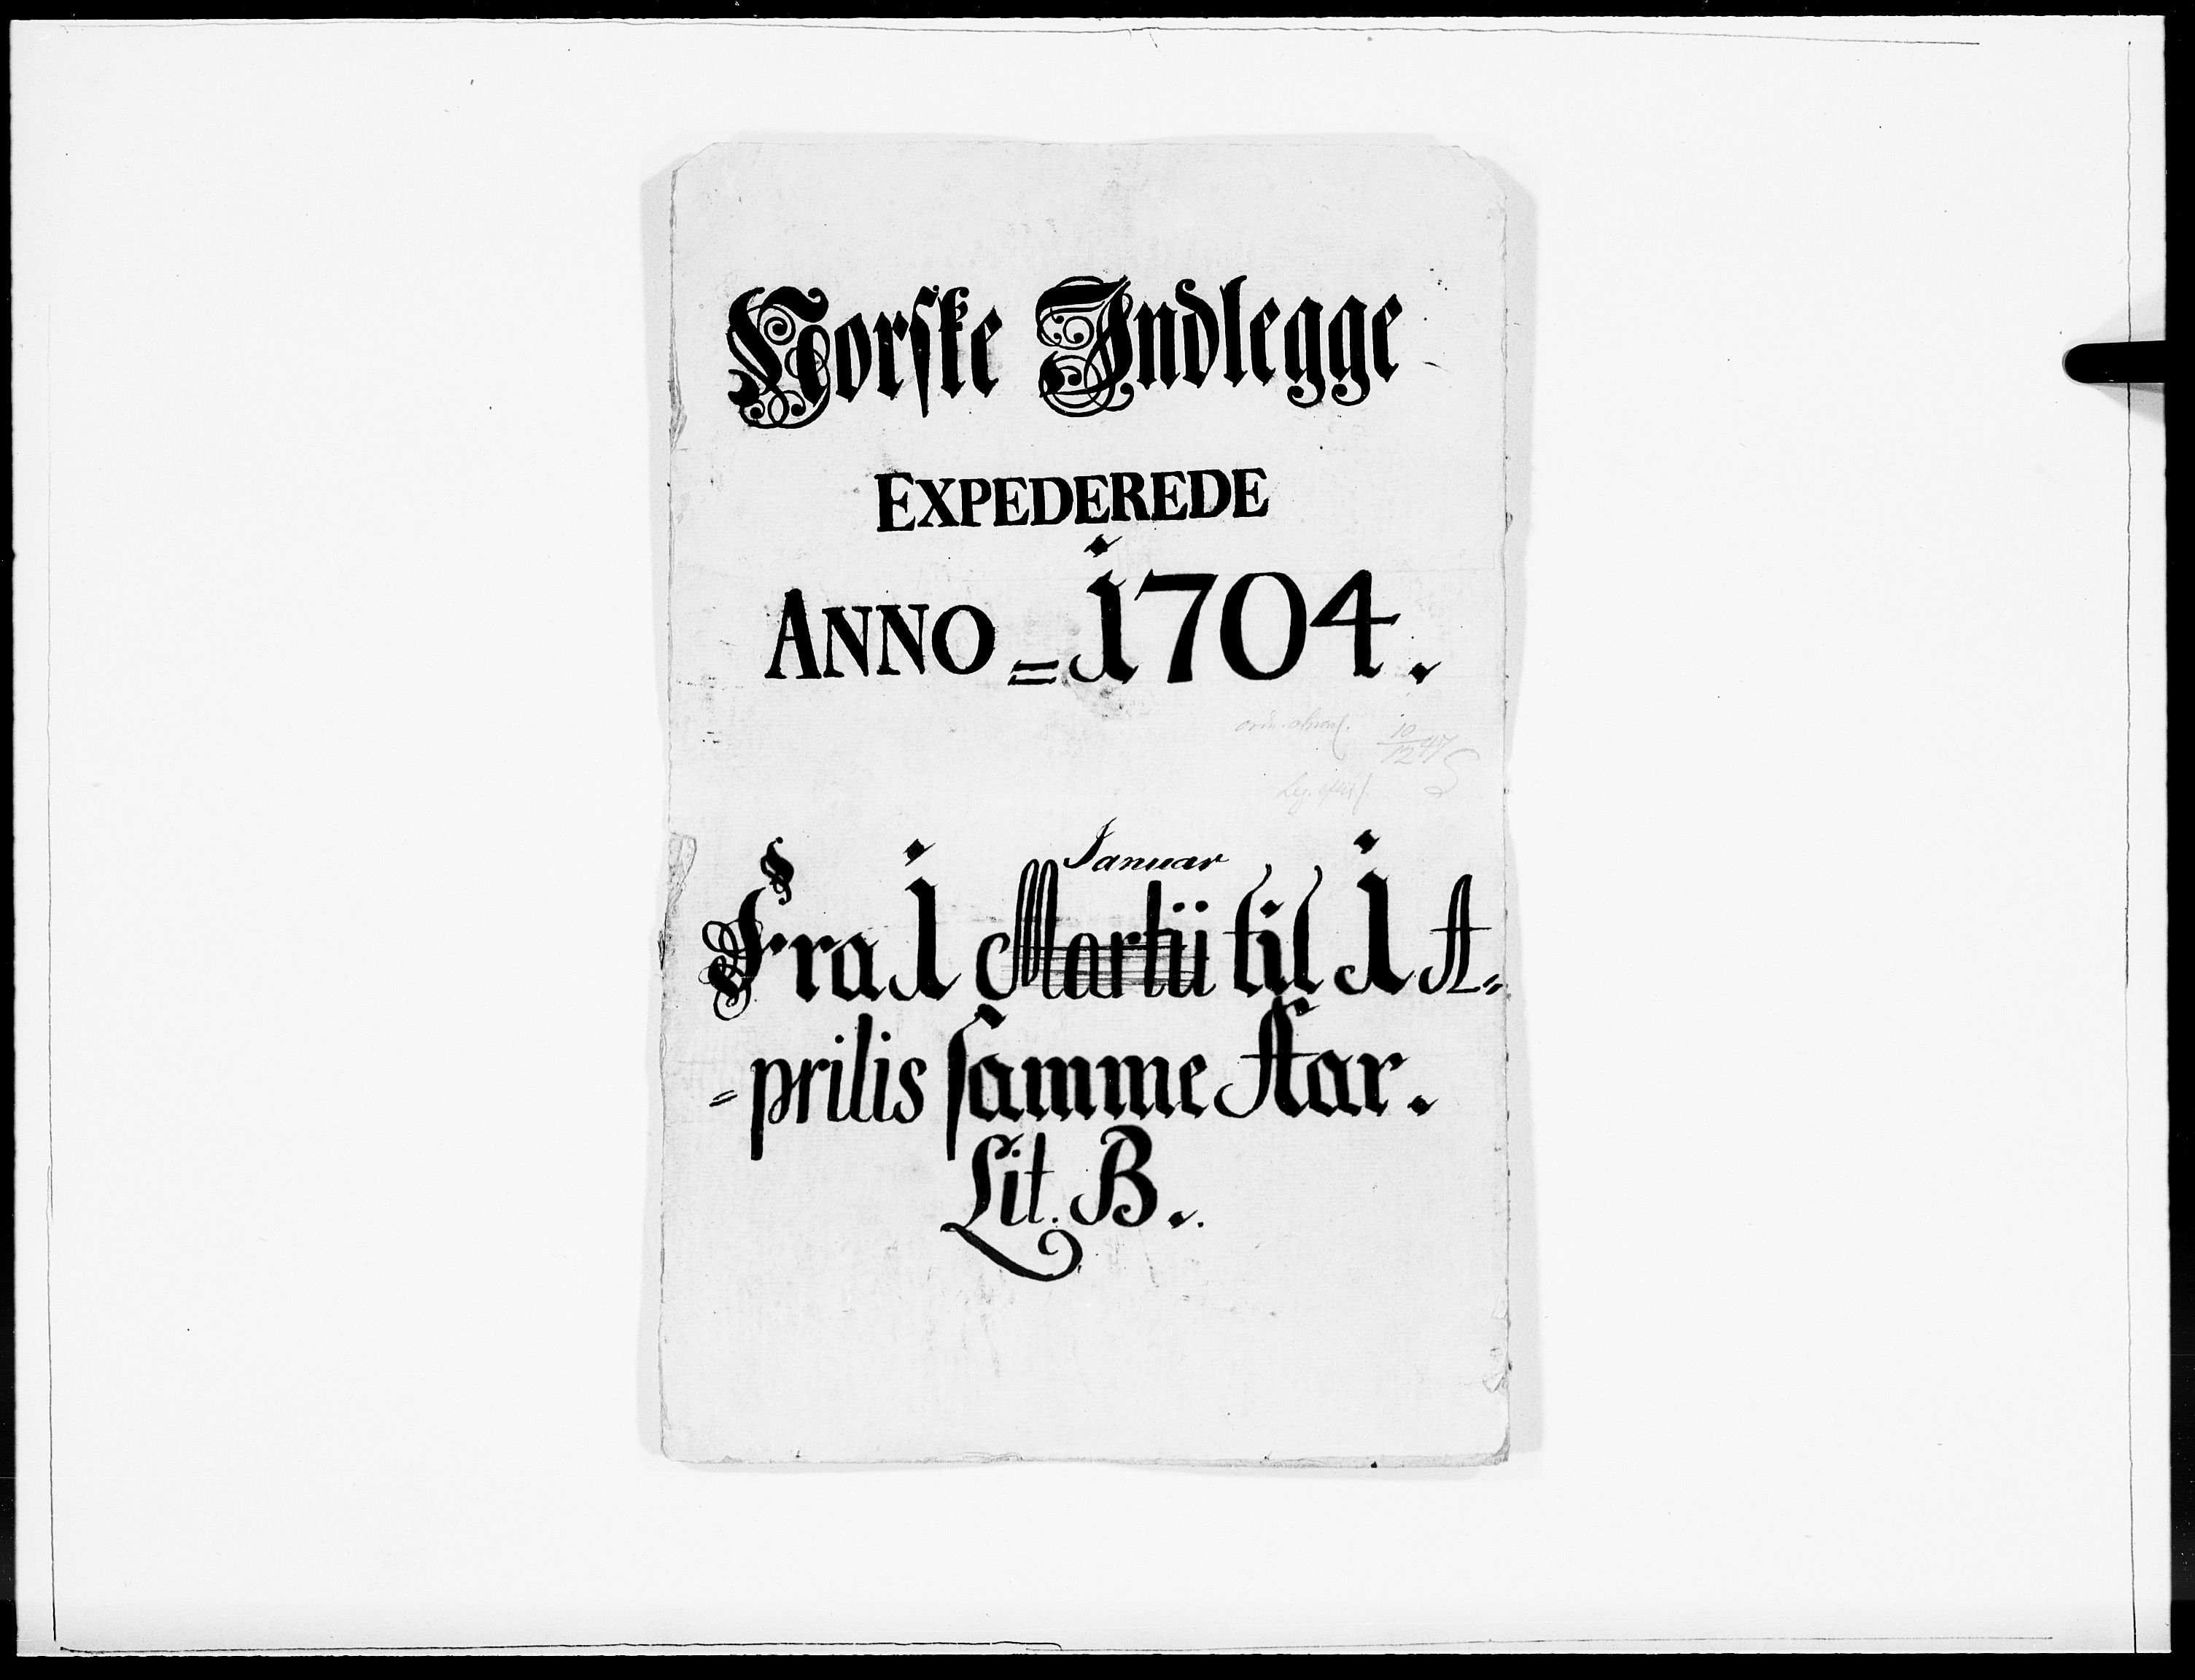 Norske Indlegge
EXPEDEREDE
ANNO = 1704.
10/12 47
Januar
Fra 1 Martii til 1 A=
=prilis samme Aar.
Lit. B.